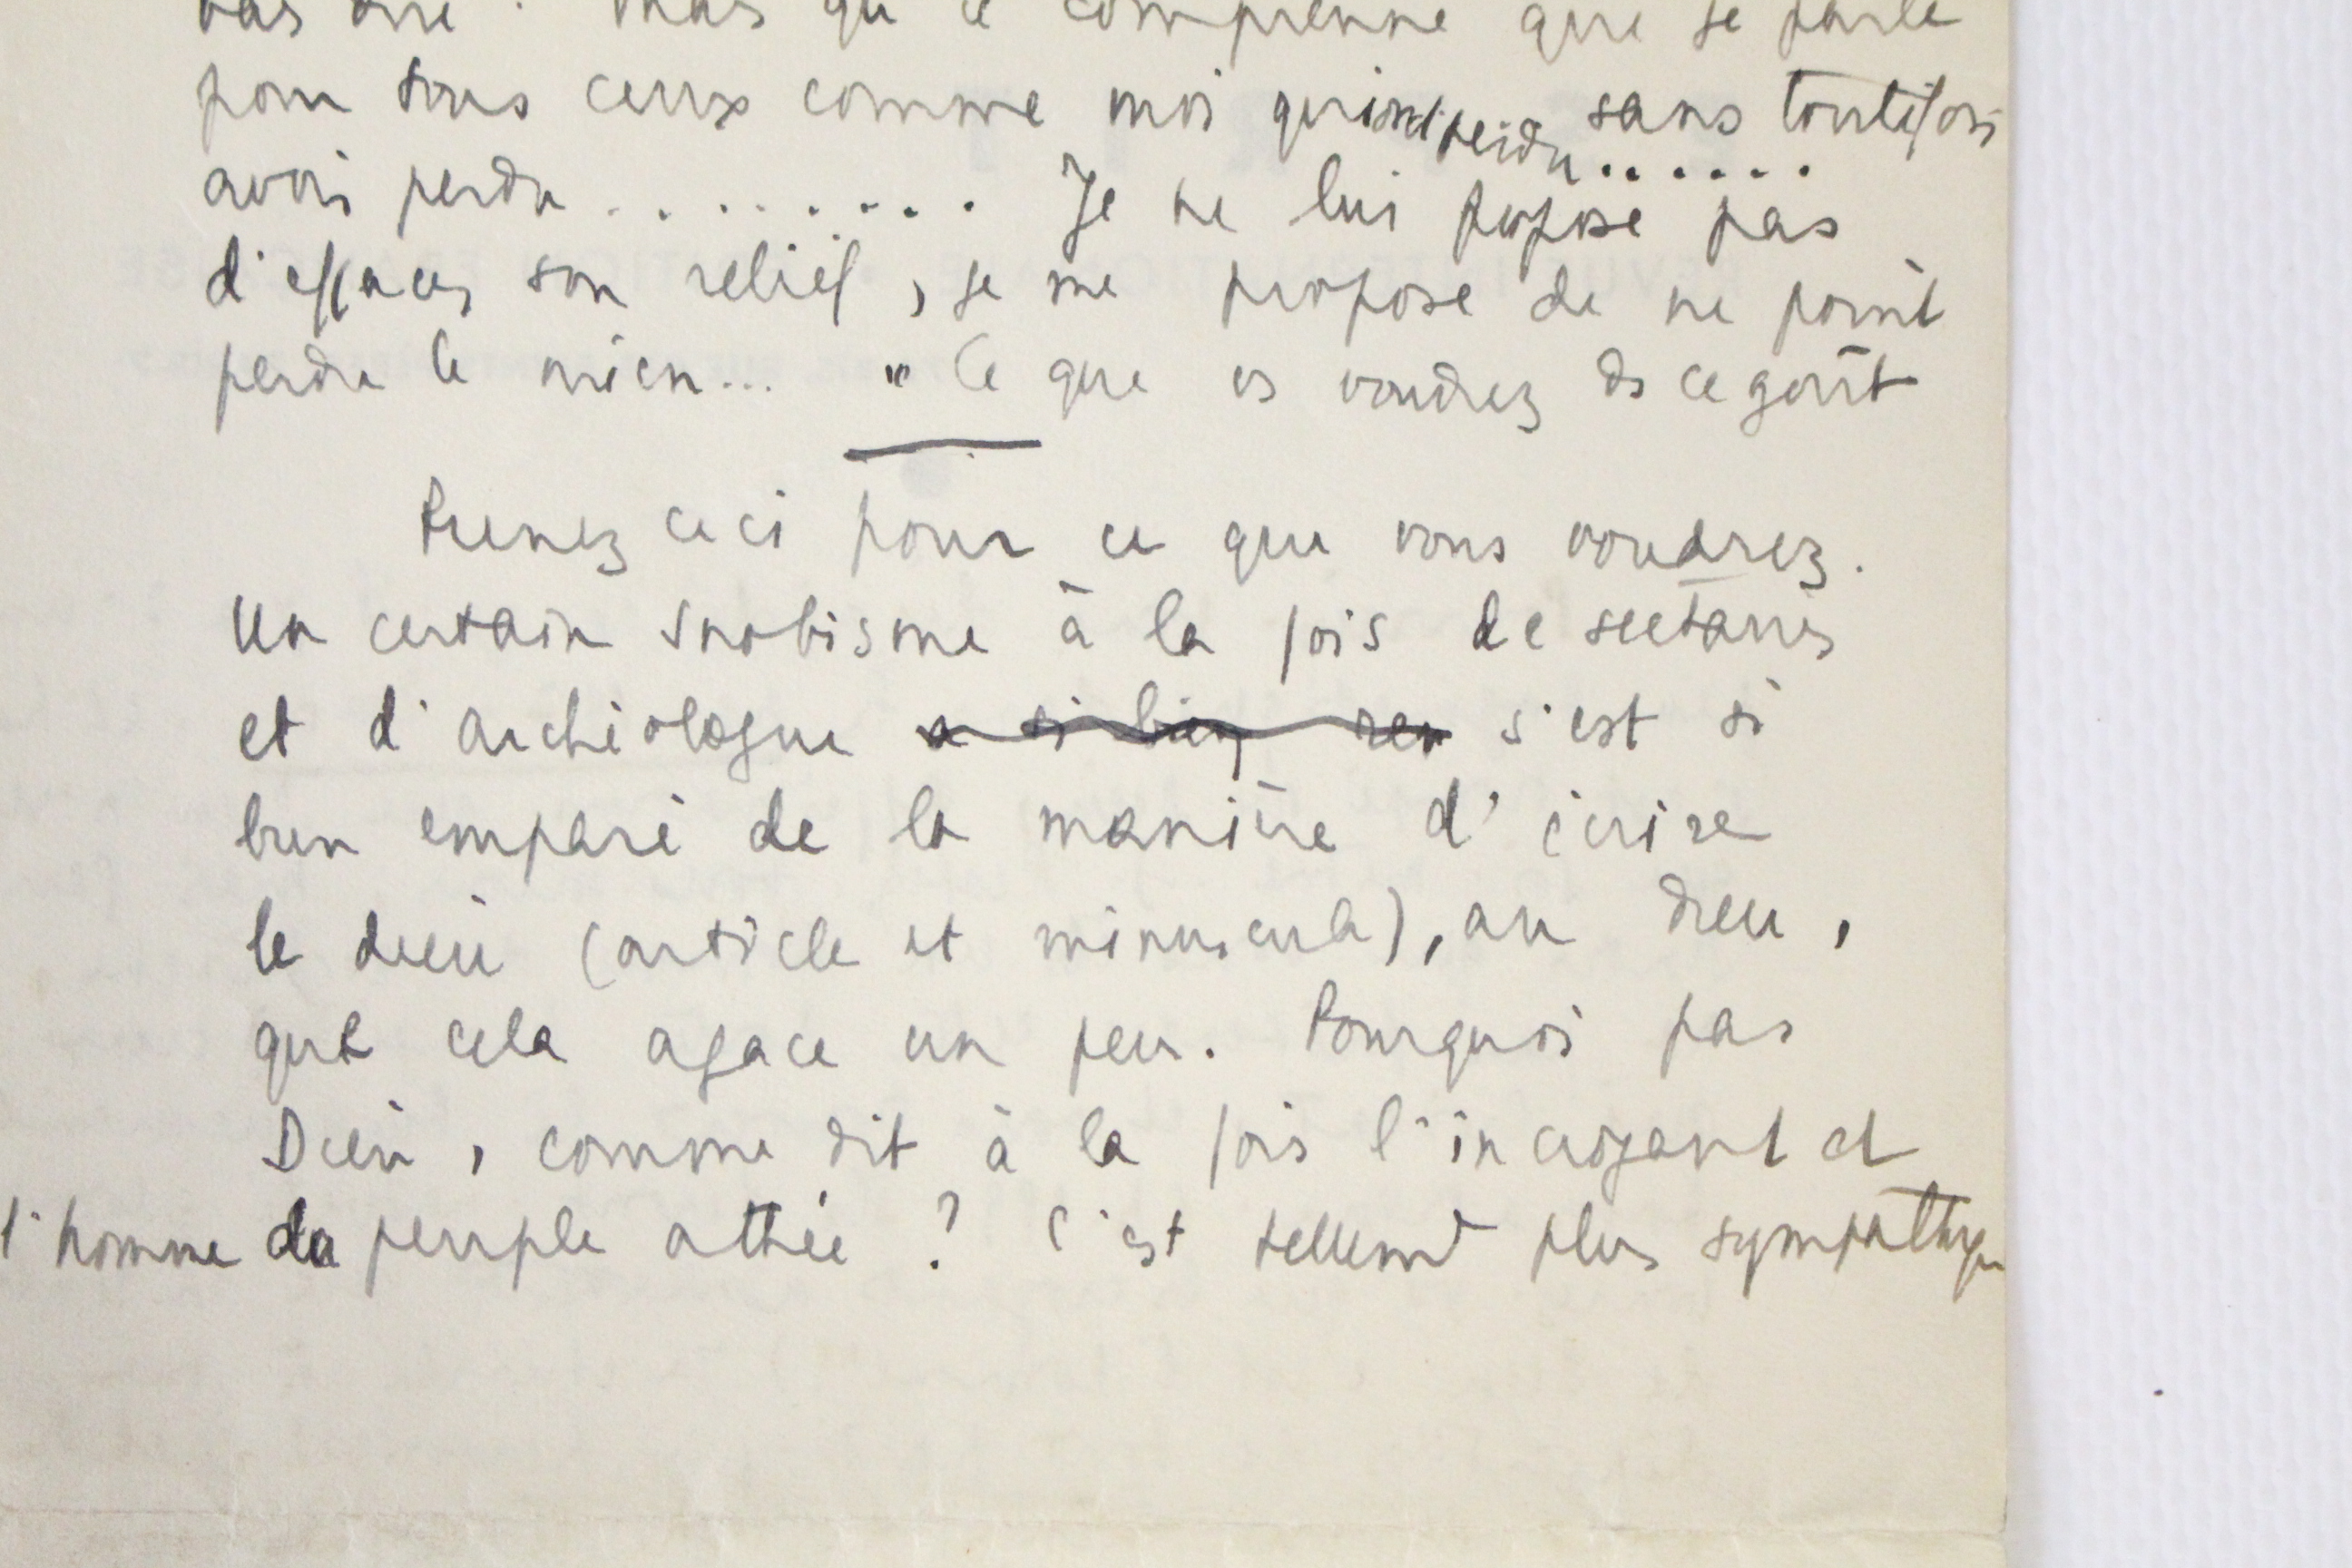 pas dire. Mais qu'il comprenne que je parle
pour tous ceux comme moi qui ont perdu...... sans toutefois
avoir perdu ......... Je ne lui propose pas
d'effacer son relief, je me propose de ne point
perdre le mien... " Ce que vs voudrez ds ce goût
Prenez ceci pour ce que vous voudrez.
Un certain snobisme à la fois de sectaires
et d'archéologue a si bien ren s'est si
bien emparé de la manière d'écrire
le dieu (article et minuscule), au dieu,
que cela agace un peu. Pourquoi pas
Dieu, comme dit à la fois l'incroyant et
l'homme du peuple athée ? C'est tellemt plus sympathique